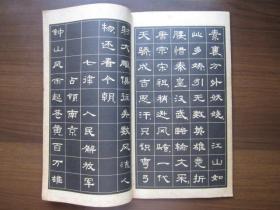 素裹分外妖娆 江山如
此多娇引无数英雄竞折
腰惜秦皇汉武略输文采
唐宗宋祖稍逊风骚一代
天骄成吉思汗只识弯弓
射大雕俱往矣数风流人
物还看今朝
七律 人民解放军
占领南京
钟山风雨起苍黄百万雄